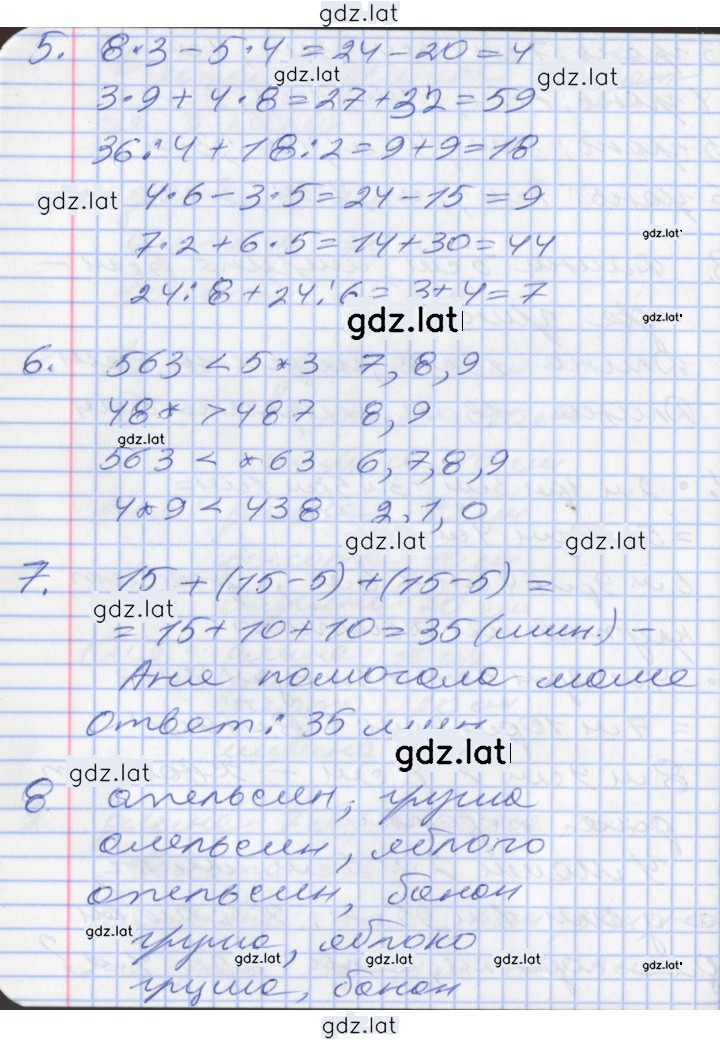 gdz.lat
5. 8·3-5·4=24-20=4
gdz.lat gdz.lat
3·9+4·8=27+32=59
36:4+18:2=9+9=18
gdz.lat 4·6-3·5=24-15=9
gdz.lat
7·2+6·5=14+30=44
24:8+24:6=3+4=7
gdz.lat gdz.lat
6. 563<5*3 7,8,9
48*>487 8,9
gdz.lat
563<*63 6,7,8,9
4*9<438 2,1,0
gdz.lat gdz.lat
7. 15+(15-5)+(15-5)=
gdz.lat
=15+10+10=35(мин.)-
Аня помогала маме
Ответ: 35 мин
gdz.lat
gdz.lat
8 апельсин, груша
апельсин, яблоко
апельсин, банан
gdz.lat
груша, яблоко
gdz.lat gdz.lat gdz.lat gdz.lat
груша, банан
gdz.lat